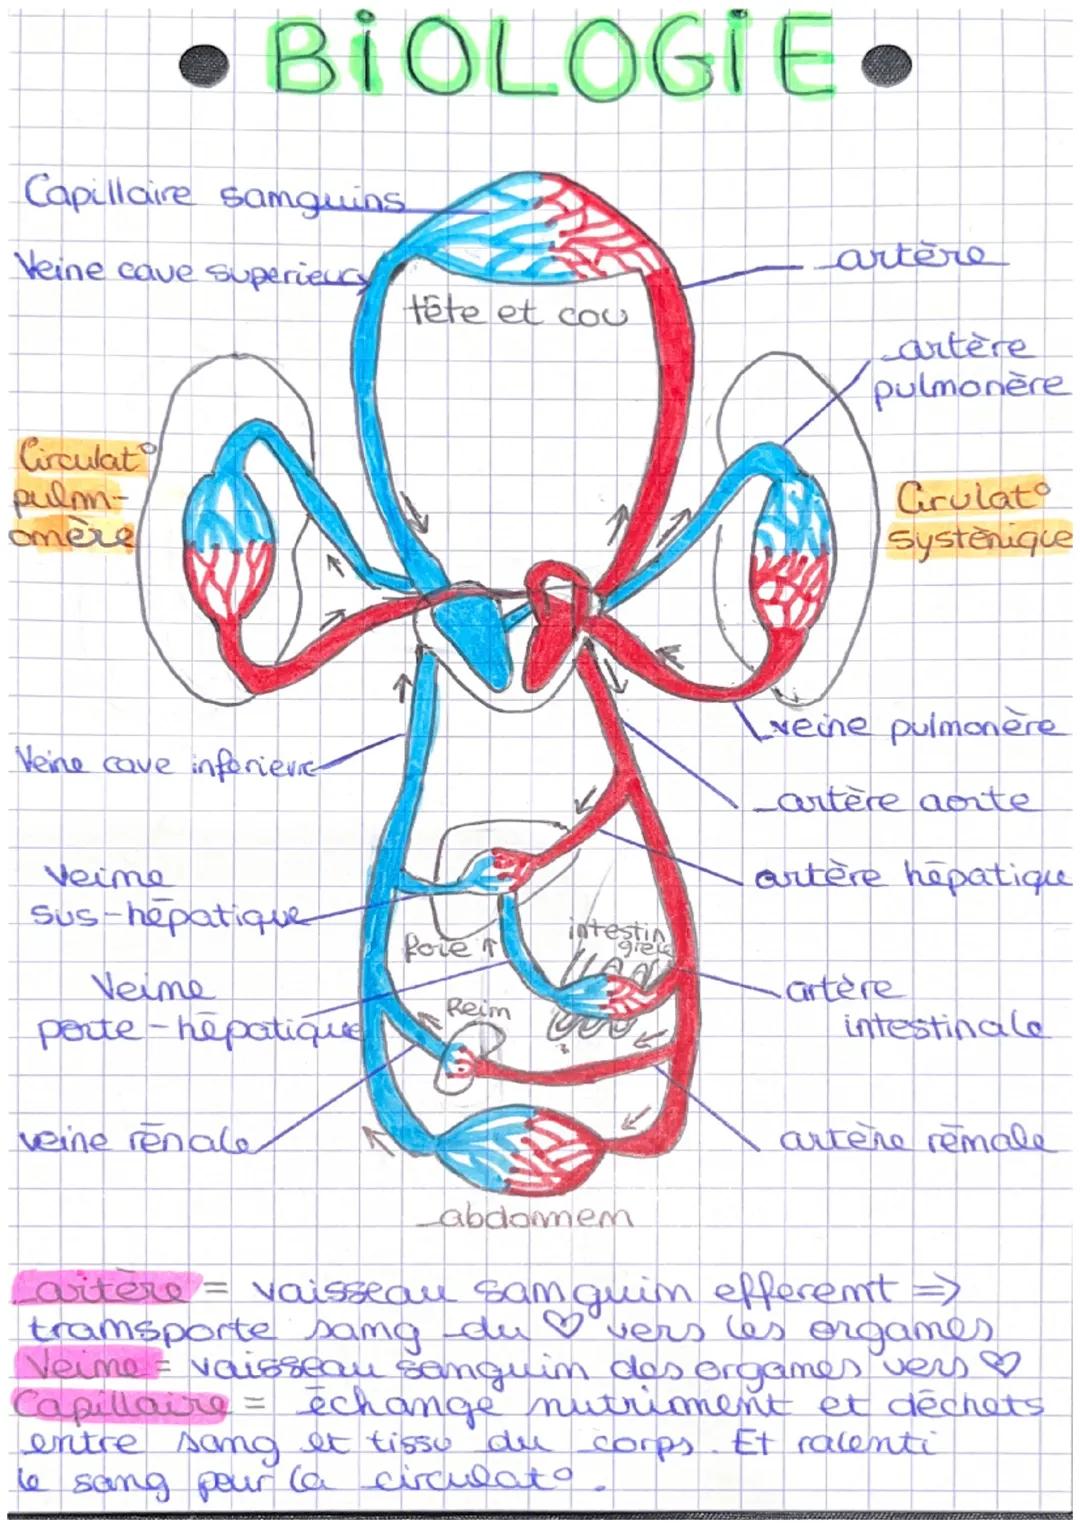 BiOLOGiE
Capillaire sanguins
Veine cave superieur
tête et cou
artère
artère
pulmonère
Circulat°
pulm-
onère
Cirulat°
systènique
veine pulmonère
Veine cave inférieure
artère aorte
Veine
sus-hépatique
artère hépatique
foie
intestin
grele
Veine
porte-hépatique
Rein
artère
intestinale
?
veine rénale
artère rénale
abdonnem
artère = vaisseau sanguin efferent =>
transporte sang du ♡ vers les organes
Veine = vaisseau sanguin des organes vers ♡
Capillaire = échange nutriment et déchets
entre sang et tissu du corps. Et ralenti
le sang pour la circulat°.